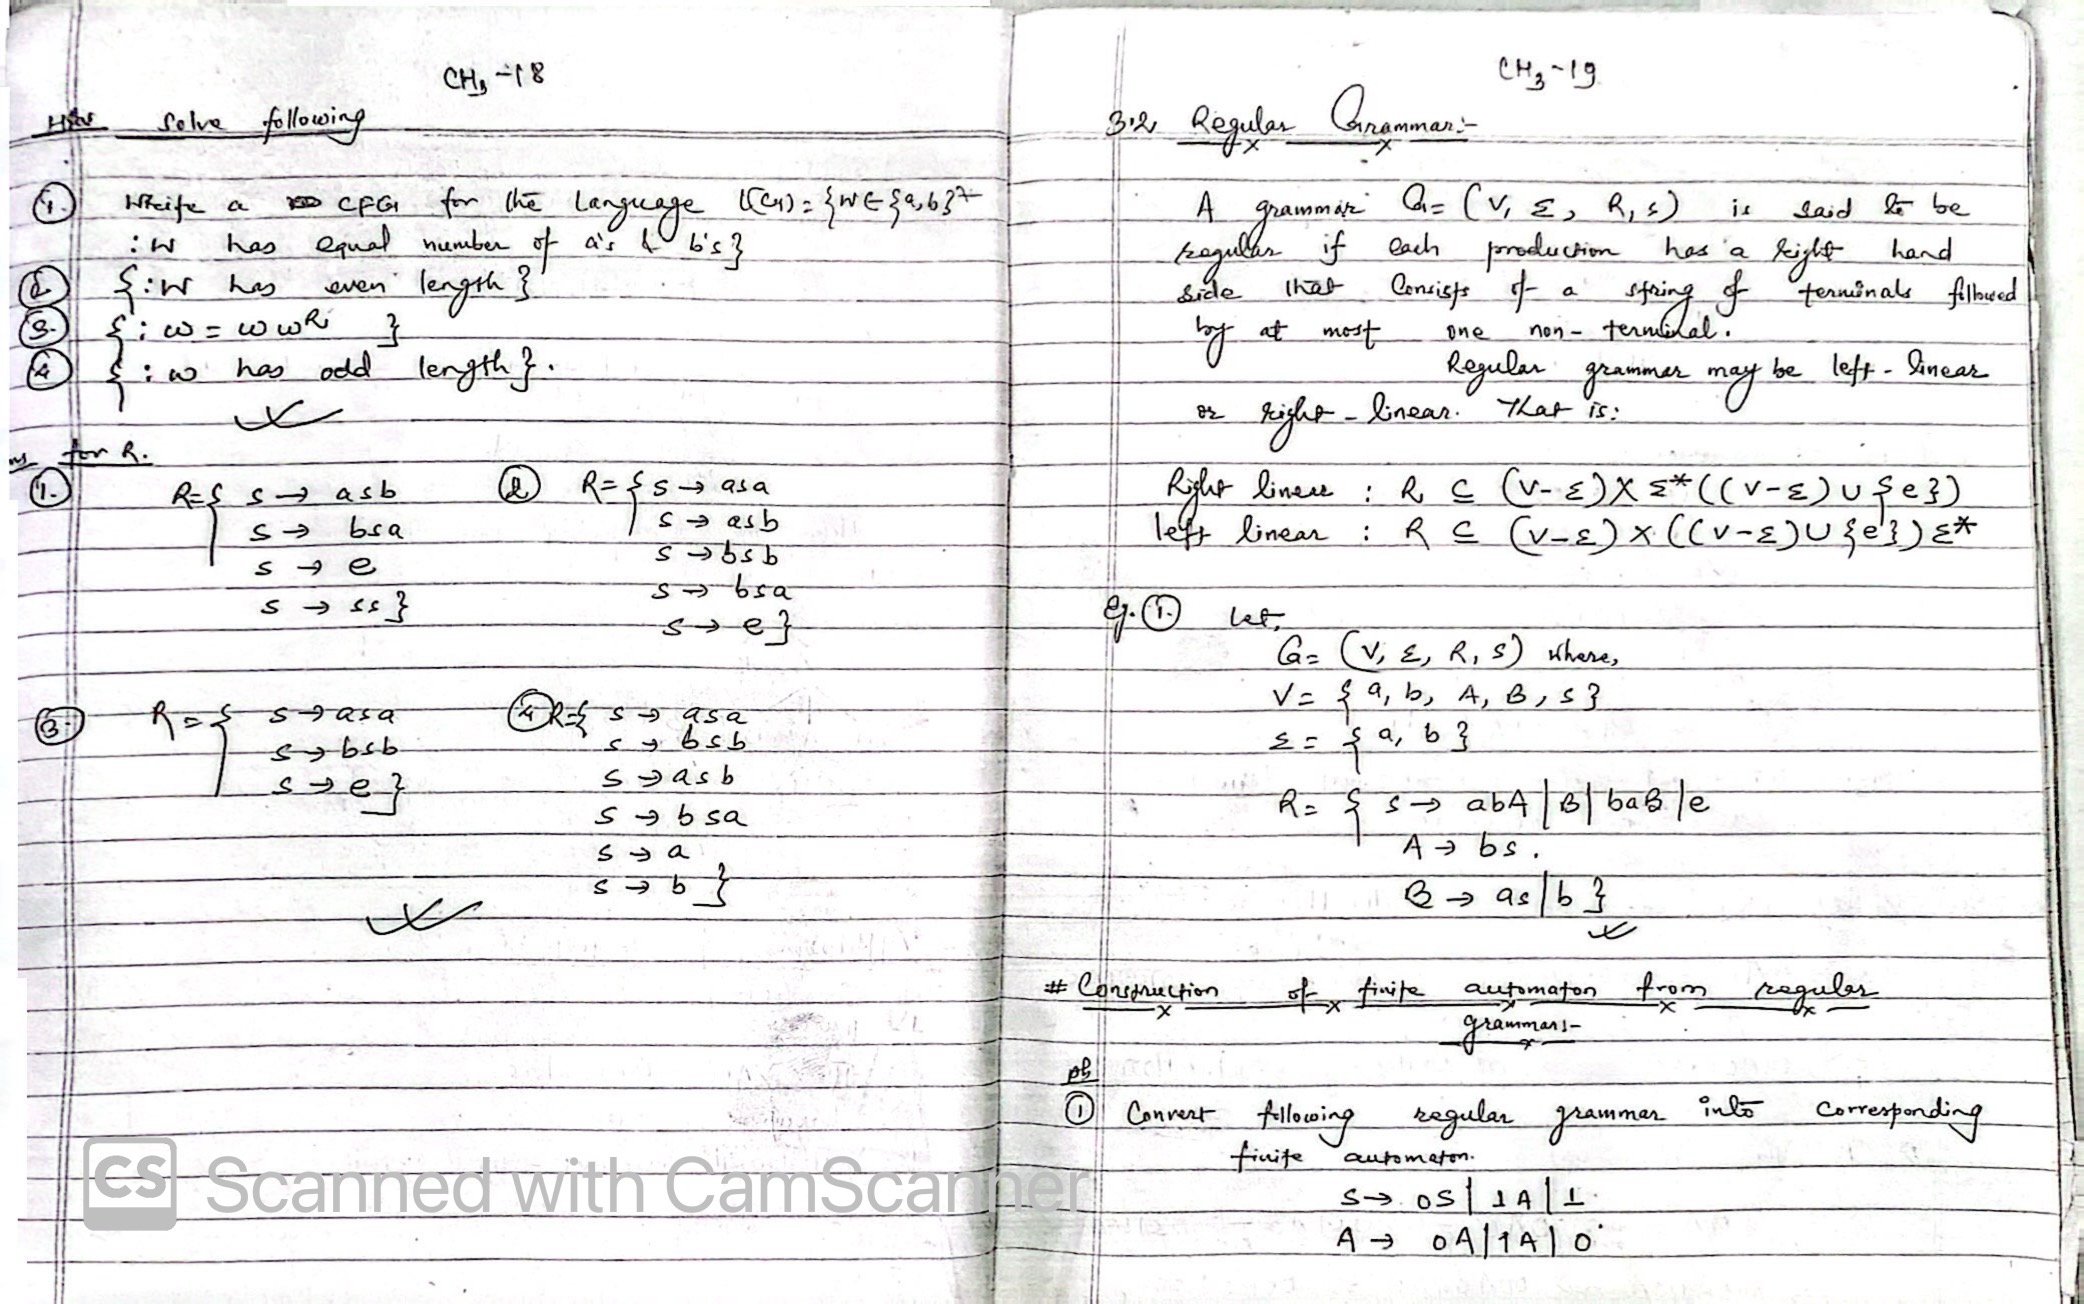 CH3-18
Solve following
1. Write a CFG for the language L(G) = {w ∈ {a,b}*
: w has equal number of a's & b's}
2. { : w has even length }
3. { : w = wwR }
4. { : w has odd length }.
for R.
1. R={ s → asb
s → bsa
s → e
s → ss }
2 R= { s → asa
s → asb
s → bsb
s → bsa
s → e }
3. R = { s → asa
s → bsb
s → e }
4 R={ s → asa
s → bsb
s → asb
s → bsa
s → a
s → b }
CS Scanned with CamScanner
CH3-19
3.2 Regular Grammar:-
A grammar G= (V, Σ, R, s) is said to be
regular if each production has a right hand
side that consists of a string of terminals followed
by at most one non-terminal.
Regular grammar may be left-linear
or right-linear. That is:
Right linear : R ⊆ (V-Σ) X Σ*((V-Σ) ∪ {e})
left linear : R ⊆ (V-Σ) X ((V-Σ) ∪ {e}) Σ*
eg. 1. Let,
G= (V, Σ, R, S) where,
V = { a, b, A, B, s }
Σ = { a, b }
R = { s → abA | B | baB | e
A → bs.
B → as | b }
# Construction of finite automaton from regular
grammar:-
1 Convert following regular grammar into corresponding
finite automaton.
S → 0S | 1A | 1
A → 0A | 1A | 0